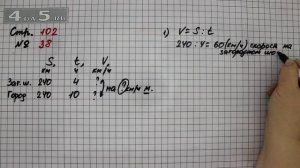 4OR5.RU
Стр. 102
№ 38
S, t, V,
км ч км/ч
Заг. ш. 240 4 ?
Город 240 10 ? на ? км/ч м.
1) V = S : t
240 : 4 = 60 (км/ч) скорость на
загородном шо